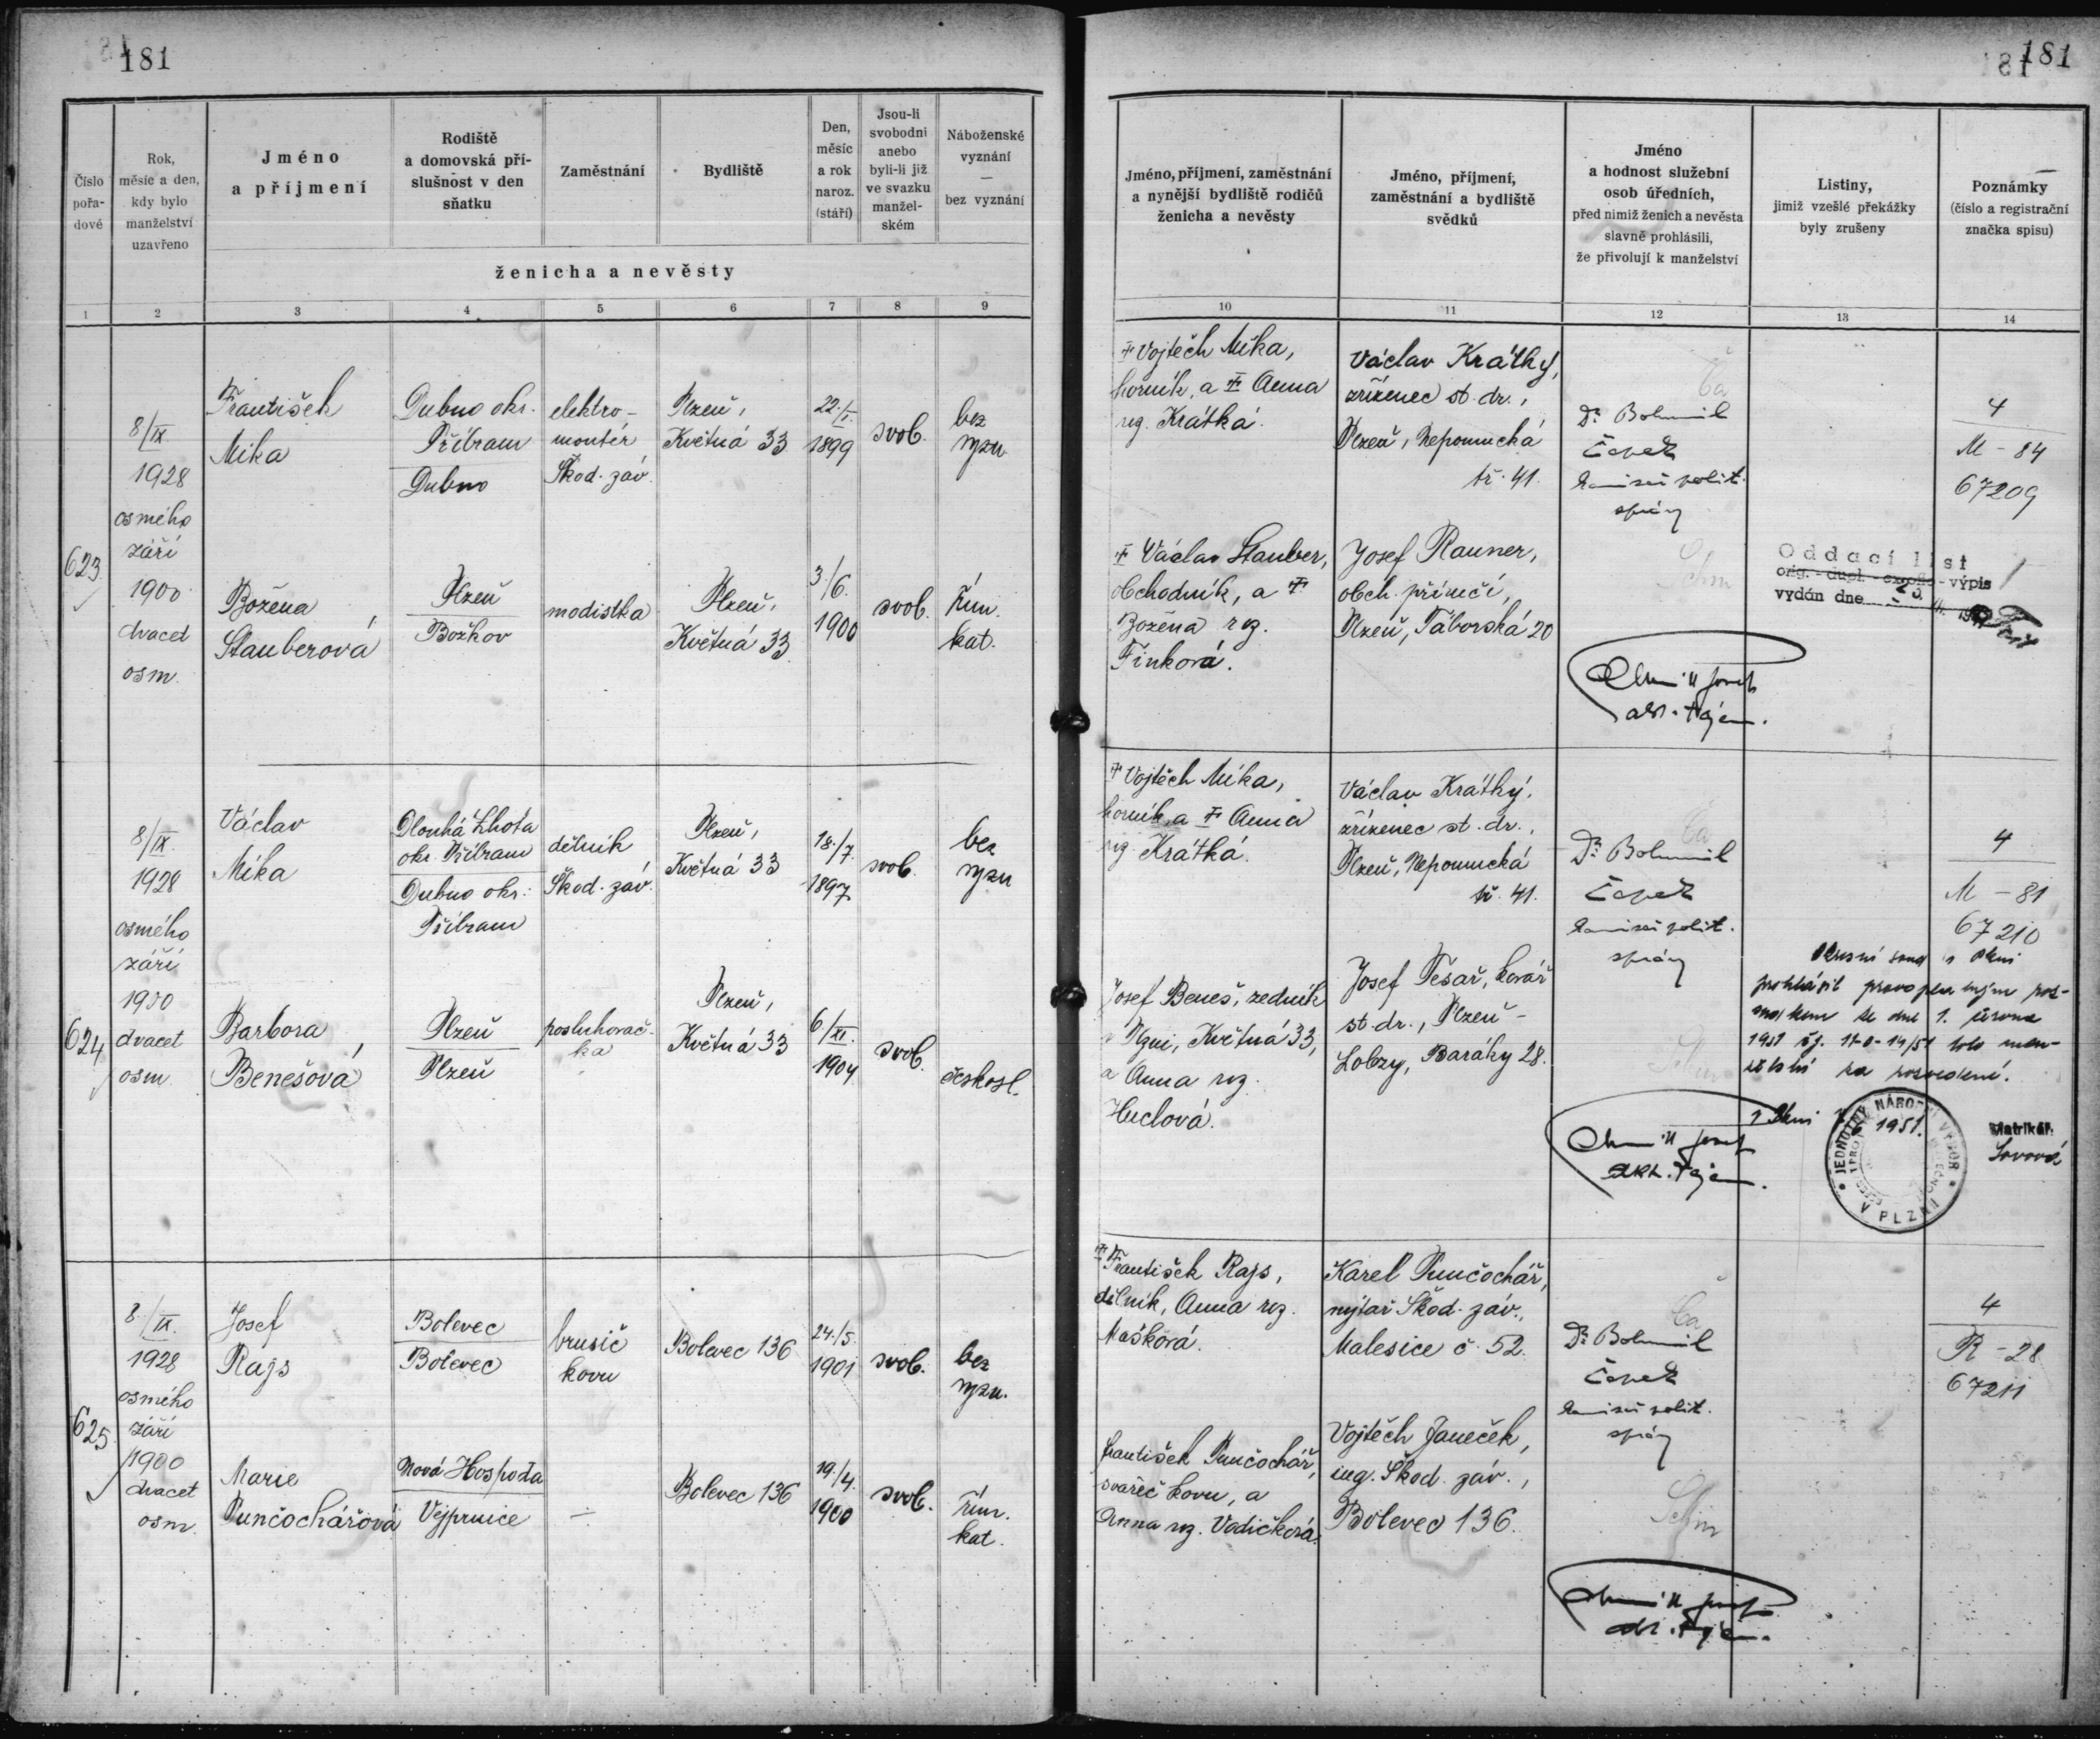 181
181
Číslo pořa-dové
Rok, měsíc a den, kdy bylo manželství uzavřeno
Jméno a příjmení
Rodiště a domovská pří-slušnost v den sňatku
Zaměstnání
Bydliště
Den, měsíc a rok naroz. (stáří)
Jsou-li svobodni anebo byli-li již ve svazku manžel-ském
Náboženské vyznání — bez vyznání
ženicha a nevěsty
Jméno, příjmení, zaměstnání a nynější bydliště rodičů ženicha a nevěsty
Jméno, příjmení, zaměstnání a bydliště svědků
Jméno a hodnost služební osob úředních, před nimiž ženich a nevěsta slavně prohlásili, že přivolují k manželství
Listiny, jimiž vzešlé překážky byly zrušeny
Poznámky (číslo a registrační značka spisu)
1 2 3 4 5 6 7 8 9 10 11 12 13 14
623
8/IX.
1928
osmého
září
1900
dvacet
osm.
František
Mika
Dubno okr.
Příbram
Dubno
elektro-
montér
Škod. záv.
Plzeň,
Květná 33
22./I.
1899
svob.
bez
vyzn.
Božena
Stauberová
Plzeň
Božkov
modistka
Plzeň,
Květná 33
3./6.
1900
svob.
řím.
kat.
Vojtěch Mika,
horník, a Anna
roz. Krátká.
Václav Stauber,
obchodník, a
Božena roz.
Finková.
Václav Krátký,
zřízenec st. dr.,
Plzeň, Nepomucká
tř. 41.
Josef Rauner,
obch. příručí,
Plzeň, Táborská 20
Dr. Bohumil
Čapek
komisař polit.
správy
Oddací list
orig. - dupl. - ex offo - výpis
vydán dne
4
M - 84
67209
624
8/IX.
1928
osmého
září
1900
dvacet
osm.
Václav
Mika
Dlouhá Lhota
okr. Příbram
Dubno okr.
Příbram
dělník
Škod. záv.
Plzeň,
Květná 33
18./7.
1897
svob.
bez
vyzn
Barbora
Benešová
Plzeň
Plzeň
posluhovač-
ka
Plzeň,
Květná 33
6./XI.
1904
svob.
českosl.
Vojtěch Mika,
horník a Anna
roz. Krátká.
Josef Beneš, zedník
v Plzni, Květná 33,
a Anna roz.
Huclová.
Václav Krátký,
zřízenec st. dr.,
Plzeň, Nepomucká
tř. 41.
Josef Tesař, kovář
st. dr., Plzeň -
Lobzy, Baráky 28.
Dr. Bohumil
Čapek
komisař polit.
správy
4
M - 81
67210
Okresní soud v Plzni
prohlásil pravoplatným roz-
sudkem ze dne 1. června
1951 toto man-
želství za rozvedené.
v Plzni
1951.
JEDNOTNÝ NÁRODNÍ VÝBOR
V PLZNI
Matrikář:
625
8./IX.
1928
osmého
září
1900
dvacet
osm.
Josef
Rajs
Bolevec
Bolevec
brusič
kovu
Bolevec 136
24./5.
1901
svob.
bez
vyzn.
Marie
Punčochářová
Nová Hospoda
Vejprnice
Bolevec 136
19./4.
1900
svob.
řím.
kat.
František Rajs,
dělník, Anna roz.
Mašková.
František Punčochář,
svářeč kovu, a
Anna roz. Vodičková.
Karel Punčochář,
nýtař Škod. záv.,
Malesice č. 52.
Vojtěch Janeček,
ing. Škod. záv.,
Bolevec 136.
Dr. Bohumil
Čapek
komisař polit.
správy
4
R - 28
67211